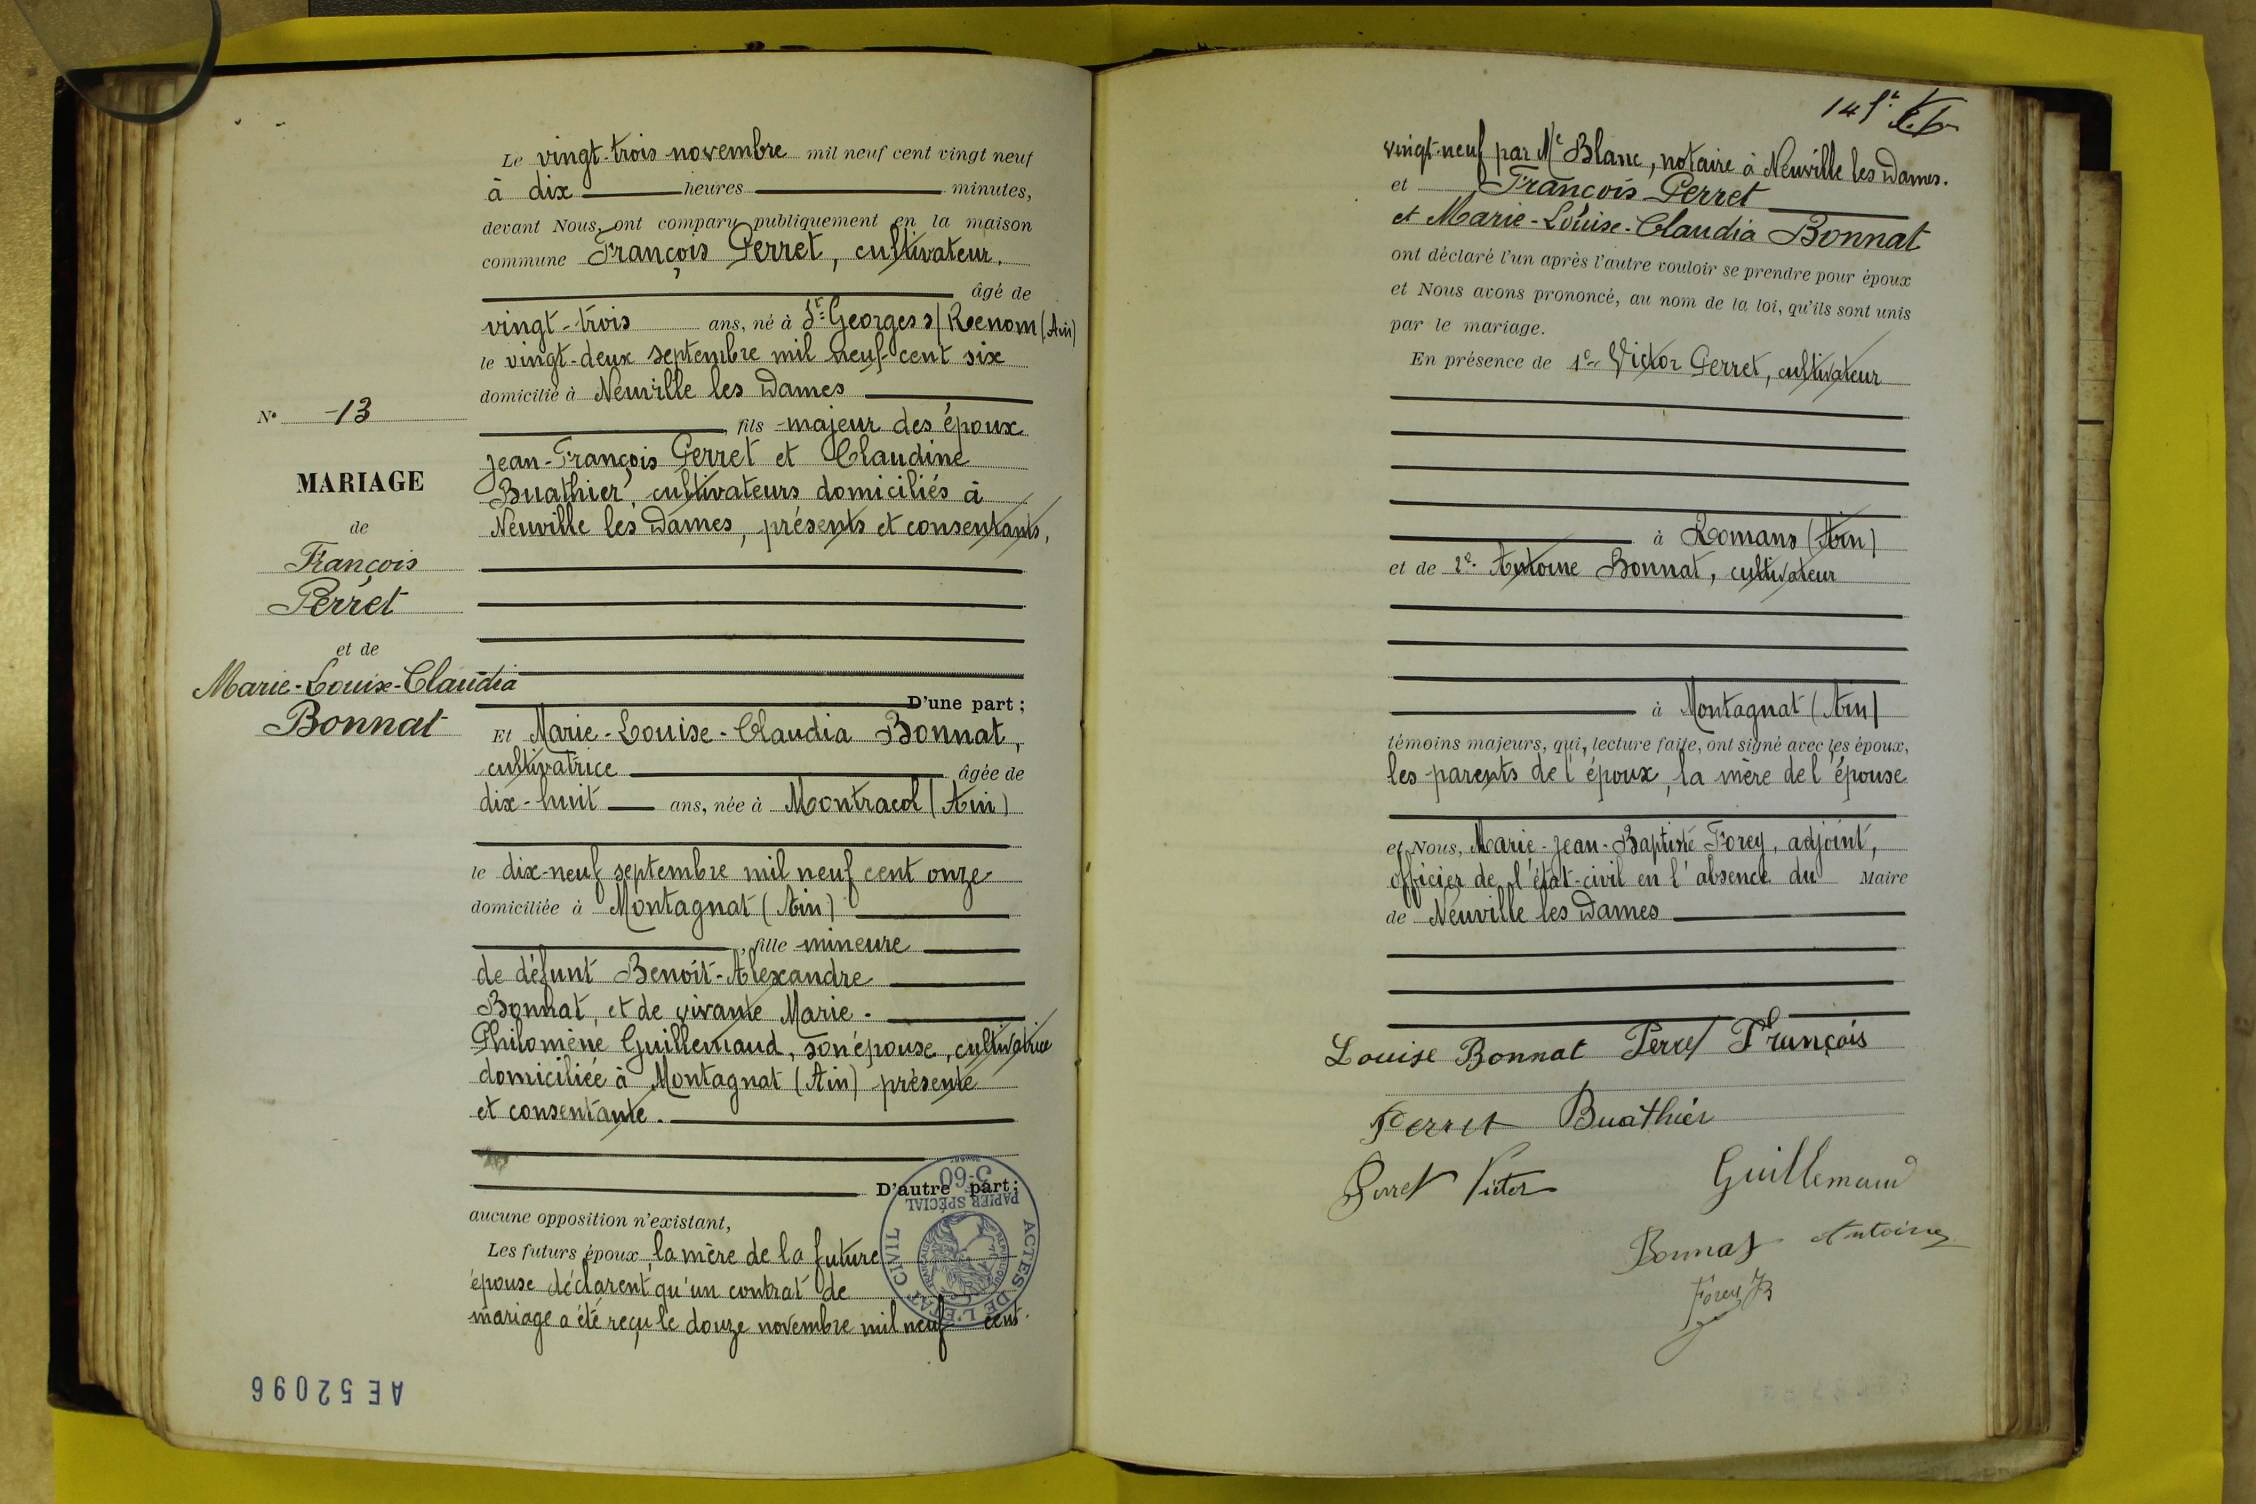 Le vingt-trois novembre mil neuf cent vingt neuf
à dix heures minutes,
devant Nous, ont comparu publiquement en la maison
commune François Perret, cultivateur,
âgé de
vingt-trois ans, né à St Georges s/ Renom (Ain)
le vingt-deux septembre mil neuf cent six
domicilié à Neuville les Dames
fils majeur des époux
Jean-François Perret et Claudine
Buathier, cultivateurs domiciliés à
Neuville les Dames, présents et consentants,
N° 13
MARIAGE
de
François
Perret
et de
Marie-Louise-Claudia
Bonnat
D'une part;
Et Marie-Louise-Claudia Bonnat,
cultivatrice âgée de
dix-huit ans, née à Montracol (Ain)
le dix-neuf septembre mil neuf cent onze
domiciliée à Montagnat (Ain)
, fille mineure
de défunt Benoît-Alexandre
Bonnat, et de vivante Marie-
Philomène Guillemaud, son épouse, cultivatrice
domiciliée à Montagnat (Ain) présente
et consentante.
D'autre part;
aucune opposition n'existant,
Les futurs époux, la mère de la future
épouse déclarent qu'un contrat de
mariage a été reçu le douze novembre mil neuf cent
ACTES DE L'ETAT CIVIL
PAPIER SPÉCIAL
3-60
RÉPUBLIQUE FRANÇAISE
AE52096
141
vingt-neuf par Me Blanc, notaire à Neuville les Dames.
et François Perret
et Marie-Louise-Claudia Bonnat
ont déclaré l'un après l'autre vouloir se prendre pour époux
et Nous avons prononcé, au nom de la loi, qu'ils sont unis
par le mariage.
En présence de 1e Victor Perret, cultivateur
à Romans (Ain)
et de 2e Antoine Bonnat, cultivateur
à Montagnat (Ain)
témoins majeurs, qui, lecture faite, ont signé avec les époux,
les parents de l'époux, la mère de l'épouse
et Nous, Marie-Jean-Baptiste Forey, adjoint,
officier de l'état-civil en l'absence du Maire
de Neuville les Dames
Louise Bonnat Perret François
Perret Buathier
Perret Victor Guillemaud
Bonnat Antoine
Forey JB